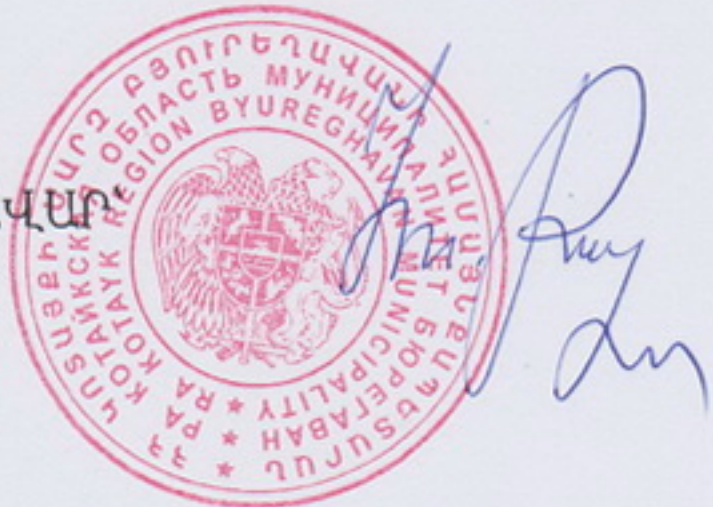 ՎԱՐ՝
ՀՀ ԿՈՏԱՅՔԻ ՄԱՐԶ ԲՅՈՒՐԵՂԱՎԱՆԻ ՀԱՄԱՅՆՔԱՊԵՏԱՐԱՆ ★
РА КОТАЙКСКАЯ ОБЛАСТЬ МУНИЦИПАЛИТЕТ БЮРЕГАВАН ★
RA KOTAYK REGION BYUREGHAVAN MUNICIPALITY ★